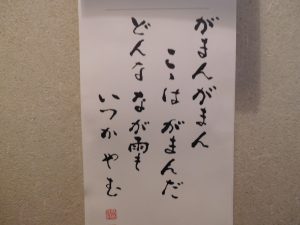 がまんがまん
こゝは がまんだ
どんな なが雨も
いつか やむ